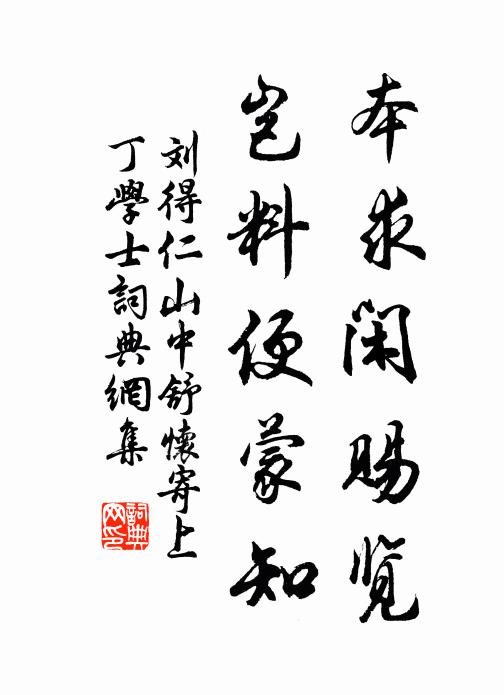 本求闲赐览
岂料便蒙知
刘得仁山中舒懷寄上
丁學士詞典網集
詞典
网印